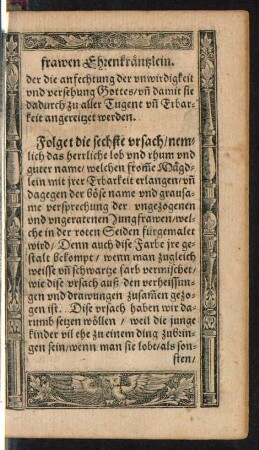 frawen Ehrenkräntzlein.
der die anfechtung der vnwirdigkeit
vnd versehung Gottes/ vn̄ damit sie
dadurch zu aller Tugent vn̄ Erbar-
keit angereitzet werden.
Folget die sechste vrsach/ nem-
lich das herrliche lob vnd rhum vnd
guter name/ welchen from̄e Mägd-
lein mit jrer Erbarkeit erlangen/ vn̄
dagegen der böse name vnd grausa-
me versprechung der vngezogenen
vnd vngeratenen Jungfrawen/ wel-
che in der roten Seiden fürgemalet
wird/ Denn auch dise Farbe jre ge-
stalt bekompt/ wenn man zugleich
weisse vn̄ schwartze farb vermischet/
wie dise vrsach auß den verheissun-
gen vnd drawungen zusam̄en gezo-
gen ist. Dise vrsach haben wir da-
rumb setzen wöllen/ weil die junge
kinder vil ehe zu einem ding zubrin-
gen sein/ wenn man sie lobt/ als son-
sten/